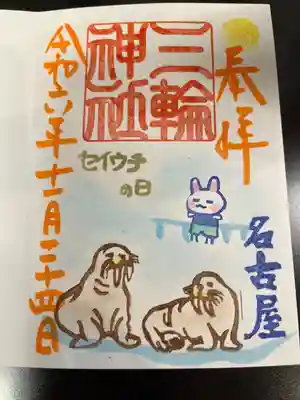 奉拝
名古屋
三輪
神社
セイウチ
の日
令和六年十一月二十四日